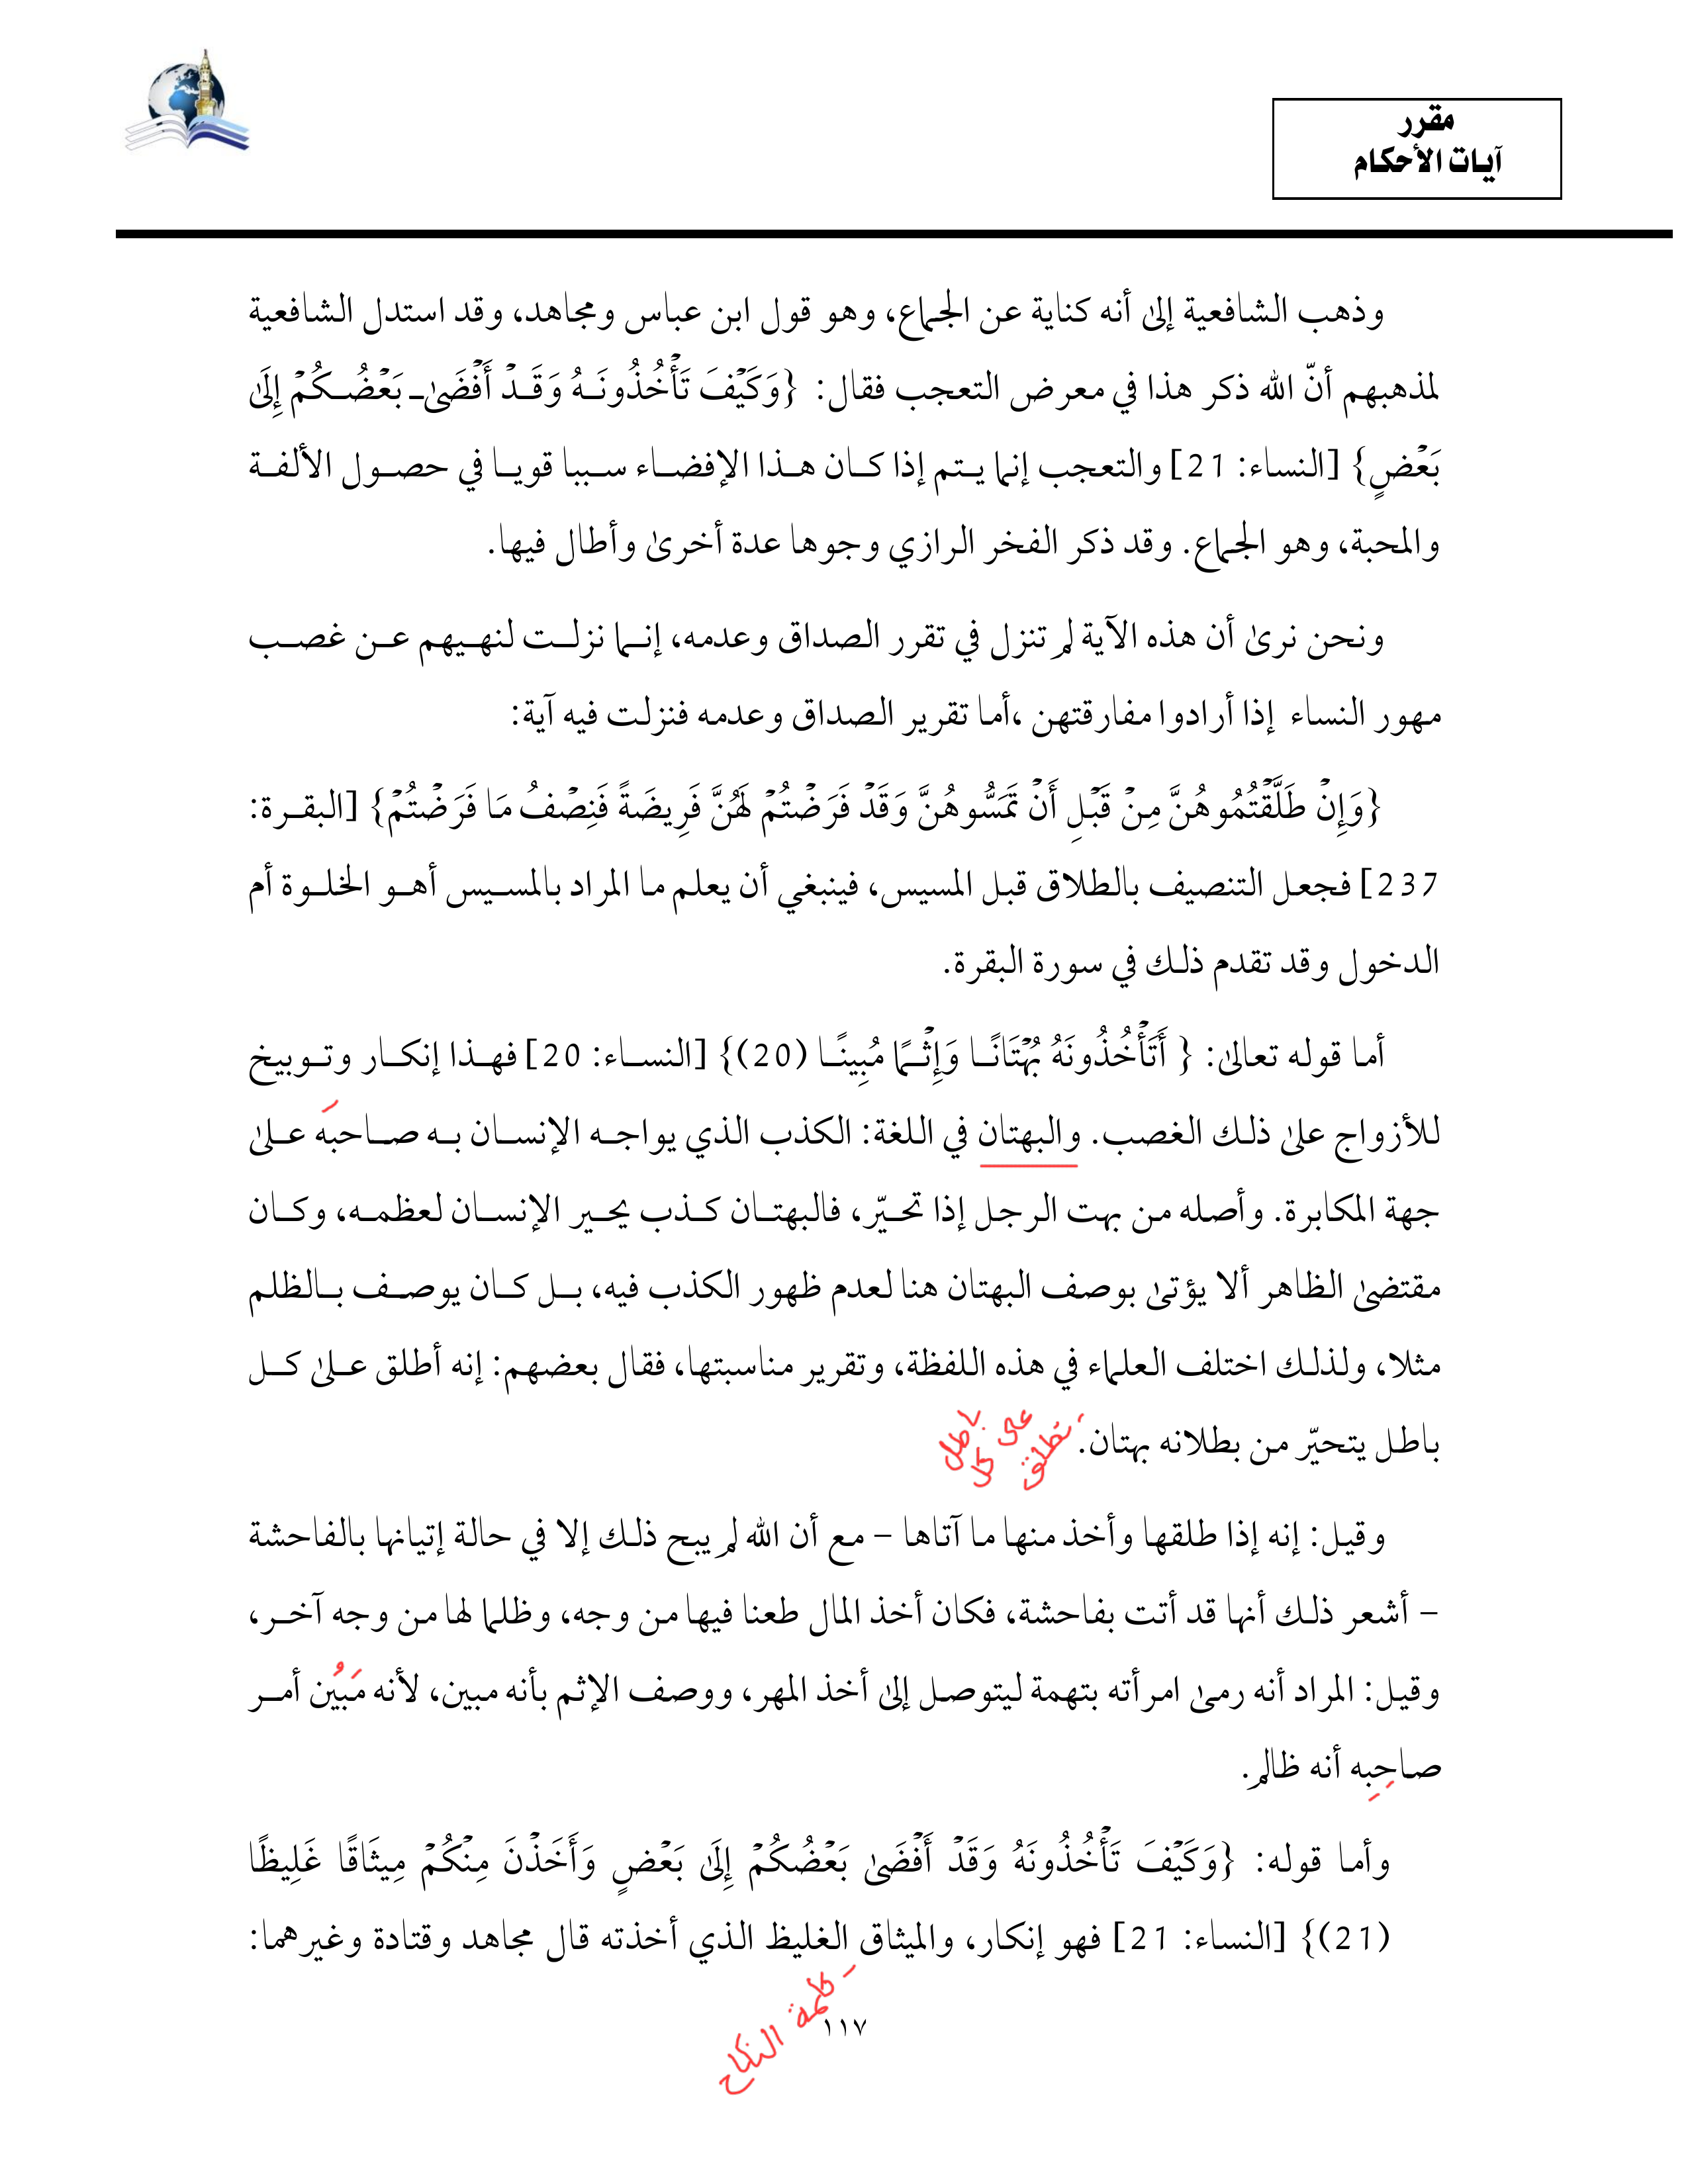 مقرر
آيات الأحكام
وذهب الشافعية إلىٰ أنه كناية عن الجماع، وهو قول ابن عباس ومجاهد، وقد استدل الشافعية
لمذهبهم أنّ الله ذكر هذا في معرض التعجب فقال: {وَكَيْفَ تَأْخُذُونَهُ وَقَدْ أَفْضَىٰ بَعْضُكُمْ إِلَىٰ
بَعْضٍ} [النساء: 21] والتعجب إنما يتم إذا كان هذا الإفضاء سببا قويا في حصول الألفة
والمحبة، وهو الجماع. وقد ذكر الفخر الرازي وجوها عدة أخرىٰ وأطال فيها.
ونحن نرىٰ أن هذه الآية لم تنزل في تقرر الصداق وعدمه، إنما نزلت لنهيهم عن غصب
مهور النساء إذا أرادوا مفارقتهن ،أما تقرير الصداق وعدمه فنزلت فيه آية:
{وَإِنْ طَلَّقْتُمُوهُنَّ مِنْ قَبْلِ أَنْ تَمَسُّوهُنَّ وَقَدْ فَرَضْتُمْ لَهُنَّ فَرِيضَةً فَنِصْفُ مَا فَرَضْتُمْ} [البقرة:
237] فجعل التنصيف بالطلاق قبل المسيس، فينبغي أن يعلم ما المراد بالمسيس أهو الخلوة أم
الدخول وقد تقدم ذلك في سورة البقرة.
أما قوله تعالىٰ: { أَتَأْخُذُونَهُ بُهْتَانًا وَإِثْمًا مُبِينًا (20)} [النساء: 20] فهذا إنكار وتوبيخ
للأزواج علىٰ ذلك الغصب. والبهتان في اللغة: الكذب الذي يواجه الإنسان به صاحبَه علىٰ
جهة المكابرة. وأصله من بهت الرجل إذا تحيّر، فالبهتان كذب يحير الإنسان لعظمه، وكان
مقتضىٰ الظاهر ألا يؤتىٰ بوصف البهتان هنا لعدم ظهور الكذب فيه، بل كان يوصف بالظلم
مثلا، ولذلك اختلف العلماء في هذه اللفظة، وتقرير مناسبتها، فقال بعضهم: إنه أطلق علىٰ كل
باطل يتحيّر من بطلانه بهتان. تطلق على كل باطل
وقيل: إنه إذا طلقها وأخذ منها ما آتاها – مع أن الله لم يبح ذلك إلا في حالة إتيانها بالفاحشة
– أشعر ذلك أنها قد أتت بفاحشة، فكان أخذ المال طعنا فيها من وجه، وظلما لها من وجه آخر،
وقيل: المراد أنه رمىٰ امرأته بتهمة ليتوصل إلىٰ أخذ المهر، ووصف الإثم بأنه مبين، لأنه مَبُين أمر
صاحِبِه أنه ظالم.
وأما قوله: {وَكَيْفَ تَأْخُذُونَهُ وَقَدْ أَفْضَىٰ بَعْضُكُمْ إِلَىٰ بَعْضٍ وَأَخَذْنَ مِنْكُمْ مِيثَاقًا غَلِيظًا
(21)} [النساء: 21] فهو إنكار، والميثاق الغليظ الذي أخذته قال مجاهد وقتادة وغيرهما:
- كلمة النكاح
١١٧